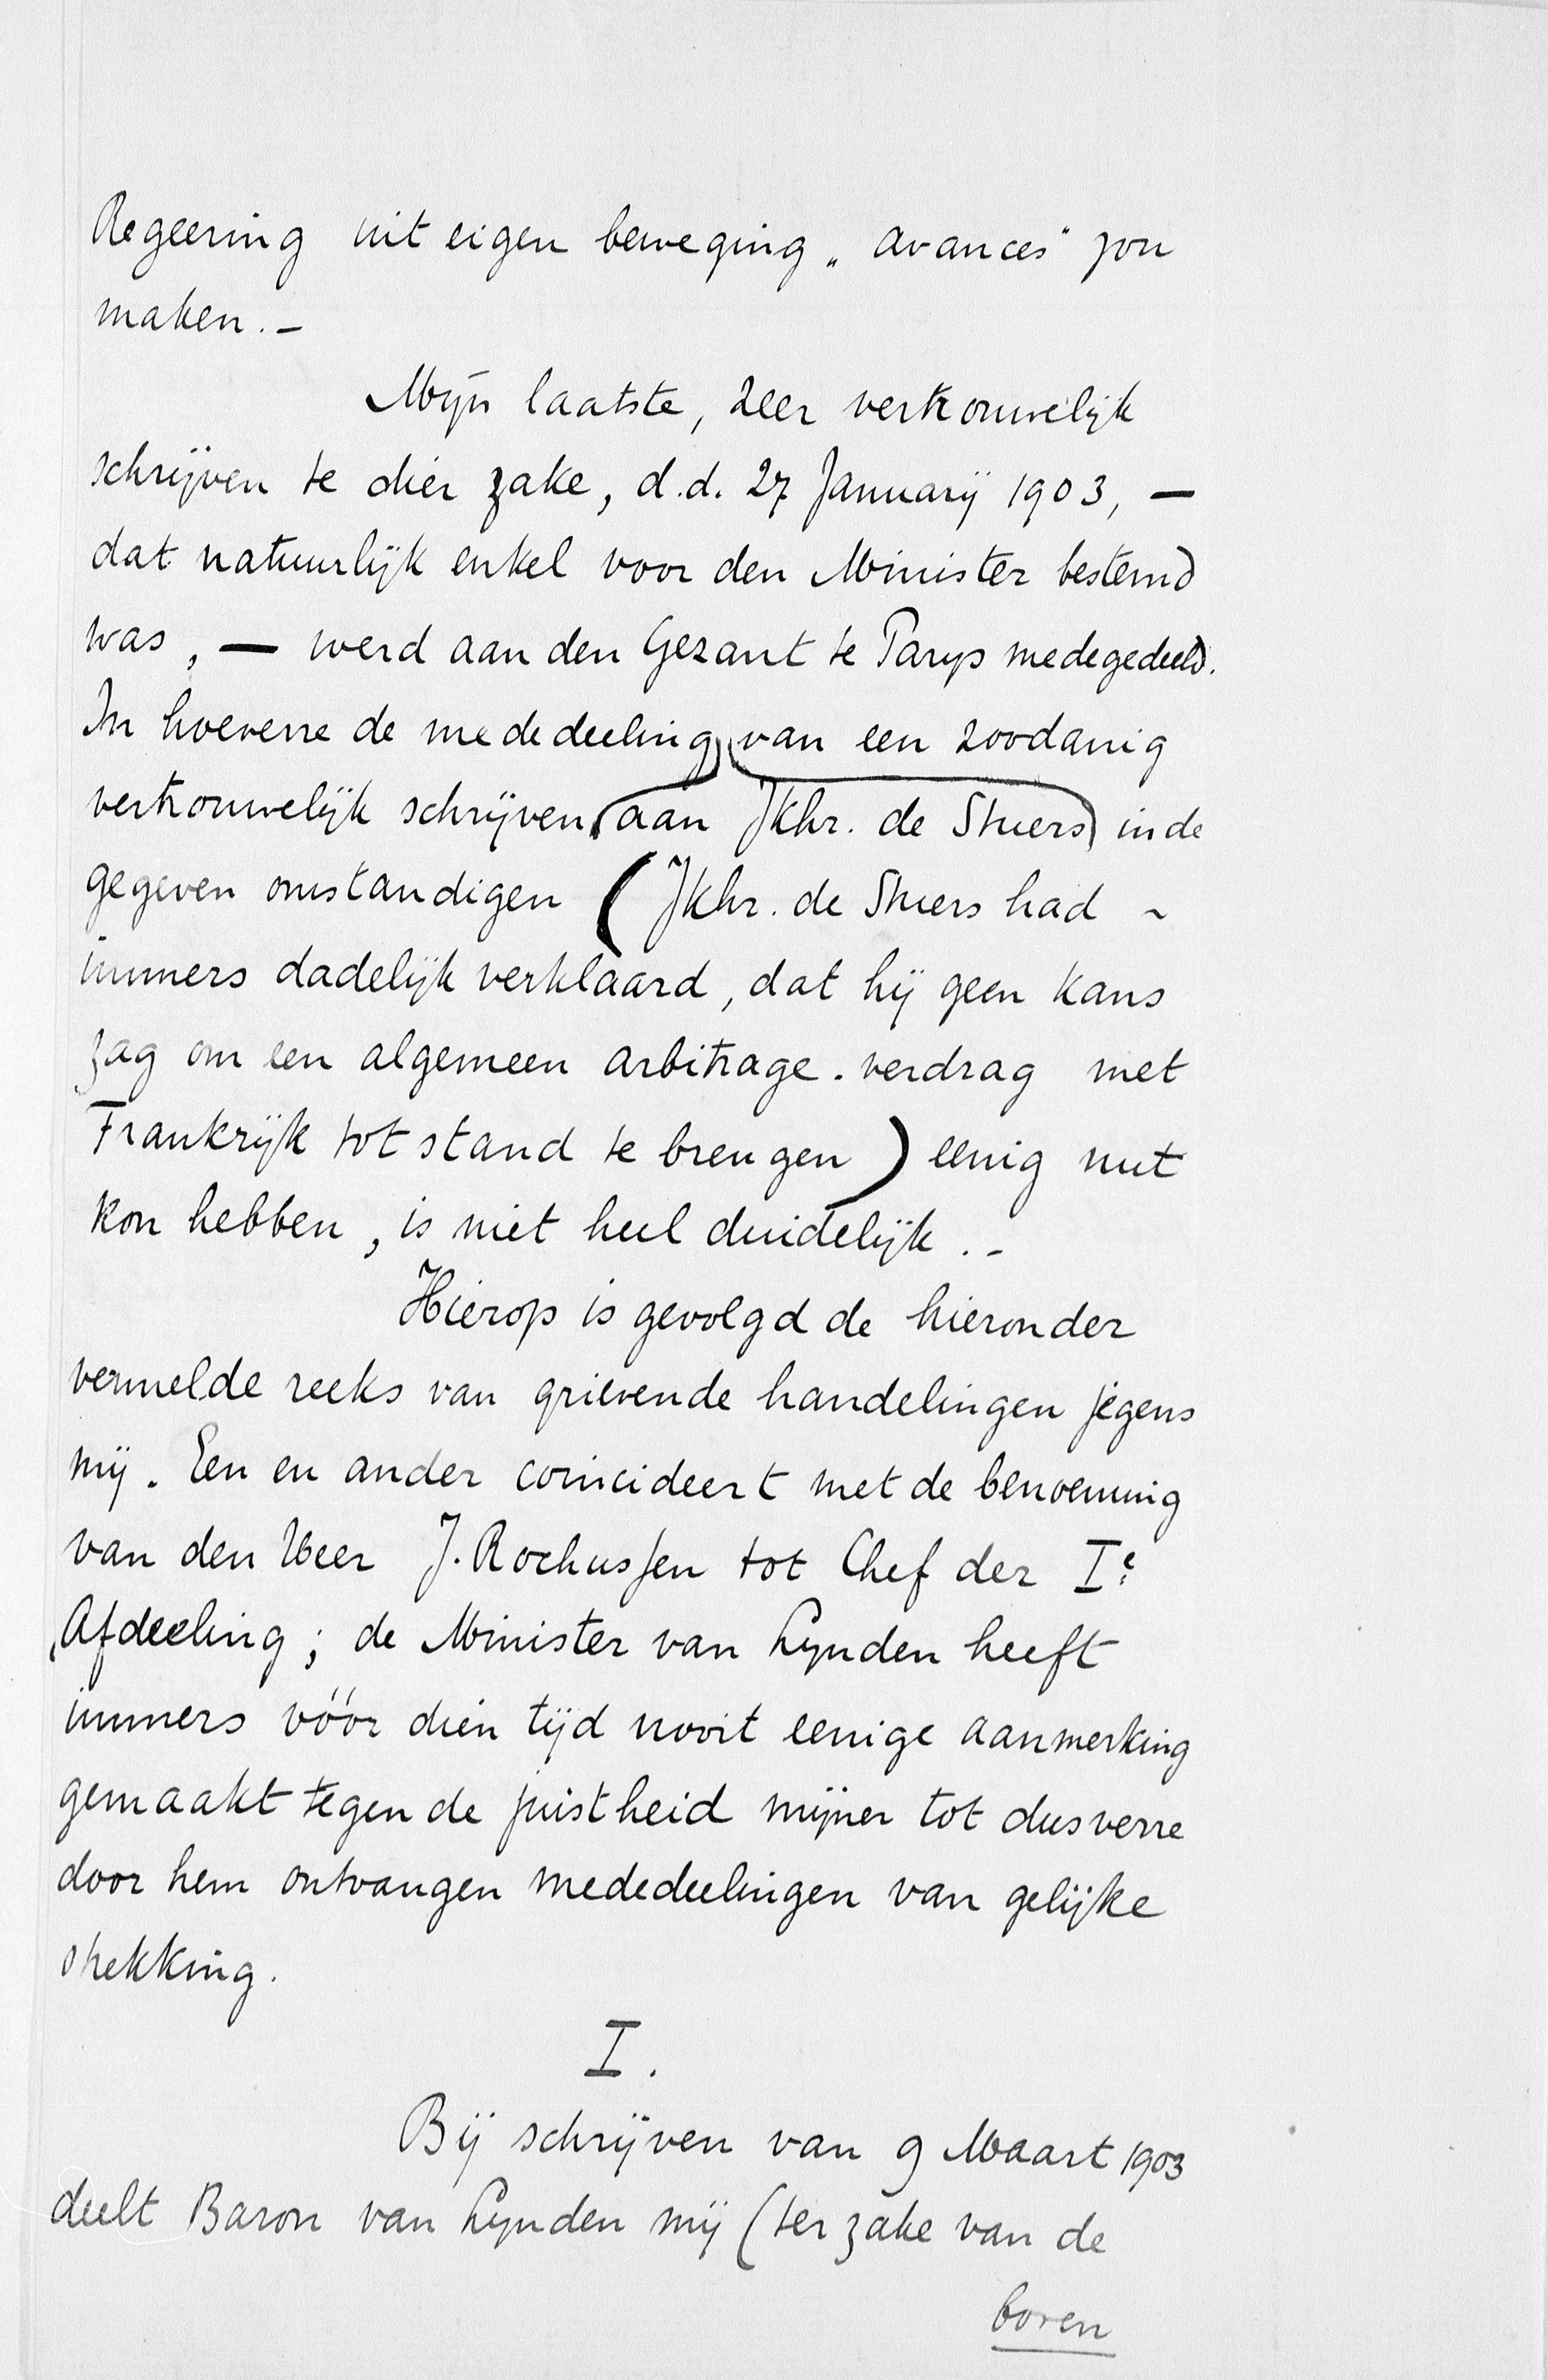 Regeering uit eigen beweging „avances" zou
maken. –
Mijn laatste, zeer vertrouwelijk
schrijven te dier zake, d.d. 27 Januarij 1903, —
dat natuurlijk enkel voor den Minister bestemd
was, — werd aan den Gezant te Parys medegedeeld.
In hoeverre de mededeeling van een zoodanig
vertrouwelijk schrijven aan Jkhr. de Stuers in de
gegeven omstandigen (Jkhr. de Stuers had ~
immers dadelijk verklaard, dat hij geen kans
zag om een algemeen arbitrage-verdrag met
Frankrijk tot stand te brengen) eenig nut
kon hebben, is niet heel duidelijk. –
Hierop is gevolgd de hieronder
vermelde reeks van grievende handelingen jegens
mij. Een en ander coïncideert met de benoeming
van den Heer J. Rochussen tot Chef der Ie
Afdeeling; de Minister van Lynden heeft
immers vóór dien tijd nooit eenige aanmerking
gemaakt tegen de juistheid mijner tot dusverre
door hem ontvangen mededeelingen van gelijke
strekking.
I.
Bij schrijven van 9 Maart 1903
deelt Baron van Lynden mij (ter zake van de
boven